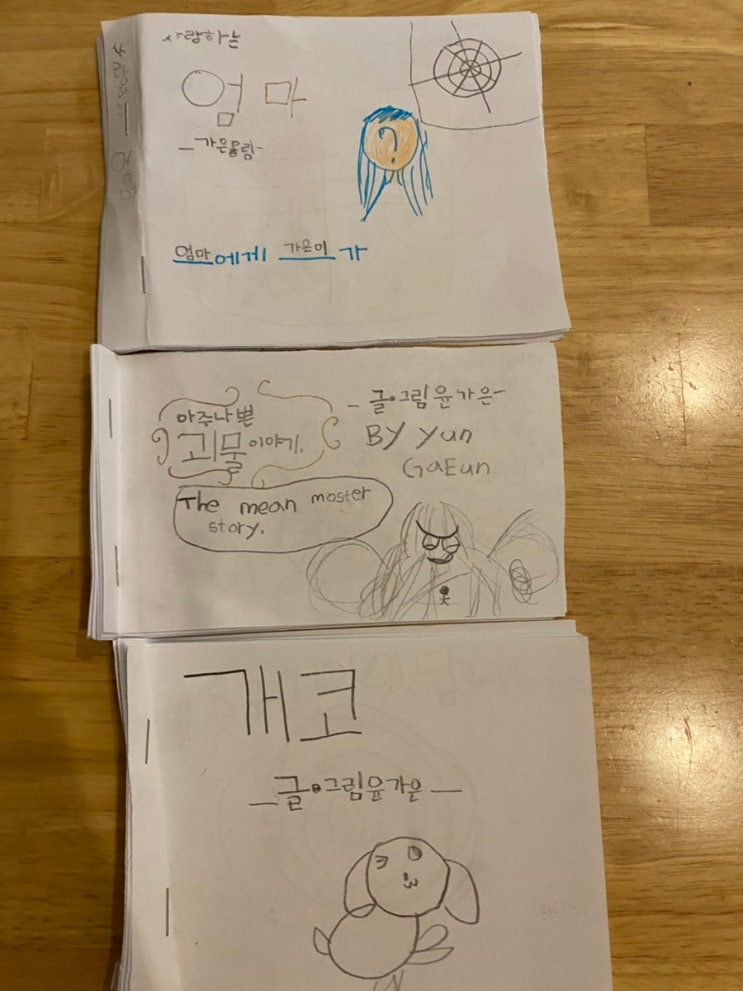 사랑하는 엄마
사랑하는
엄마
- 가은올림 -
?
엄마에게 가은이가
아주나쁜
괴물이야기.
The mean moster
story.
- 글·그림 윤가은 -
By Yun
GaEun
개코
- 글·그림 윤가은 -